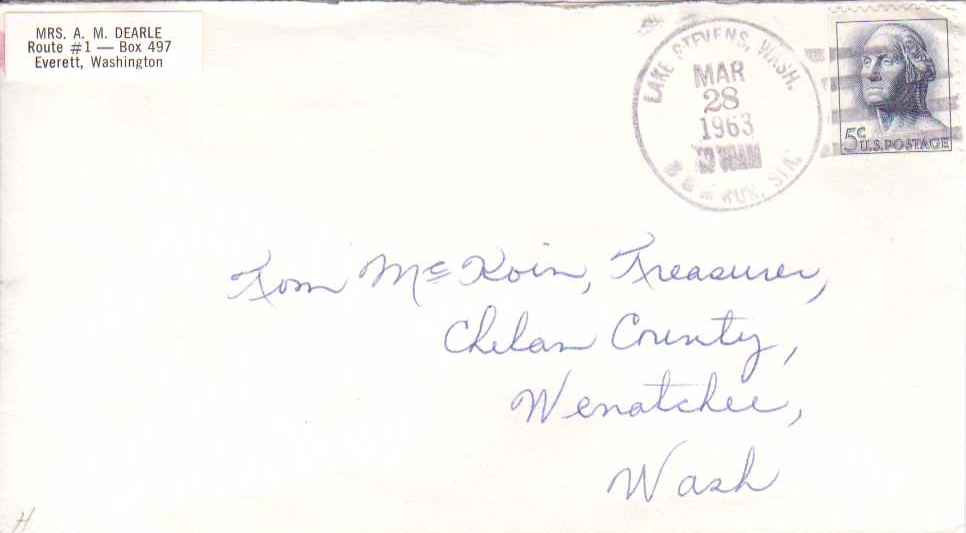 MRS. A. M. DEARLE
Route #1 — Box 497
Everett, Washington
LAKE STEVENS, WASH.
MAR
28
1963
AM
RUR. STA.
5¢ U.S. POSTAGE
Tom McKoin, Treasurer,
Chelan County,
Wenatchee,
Wash
H